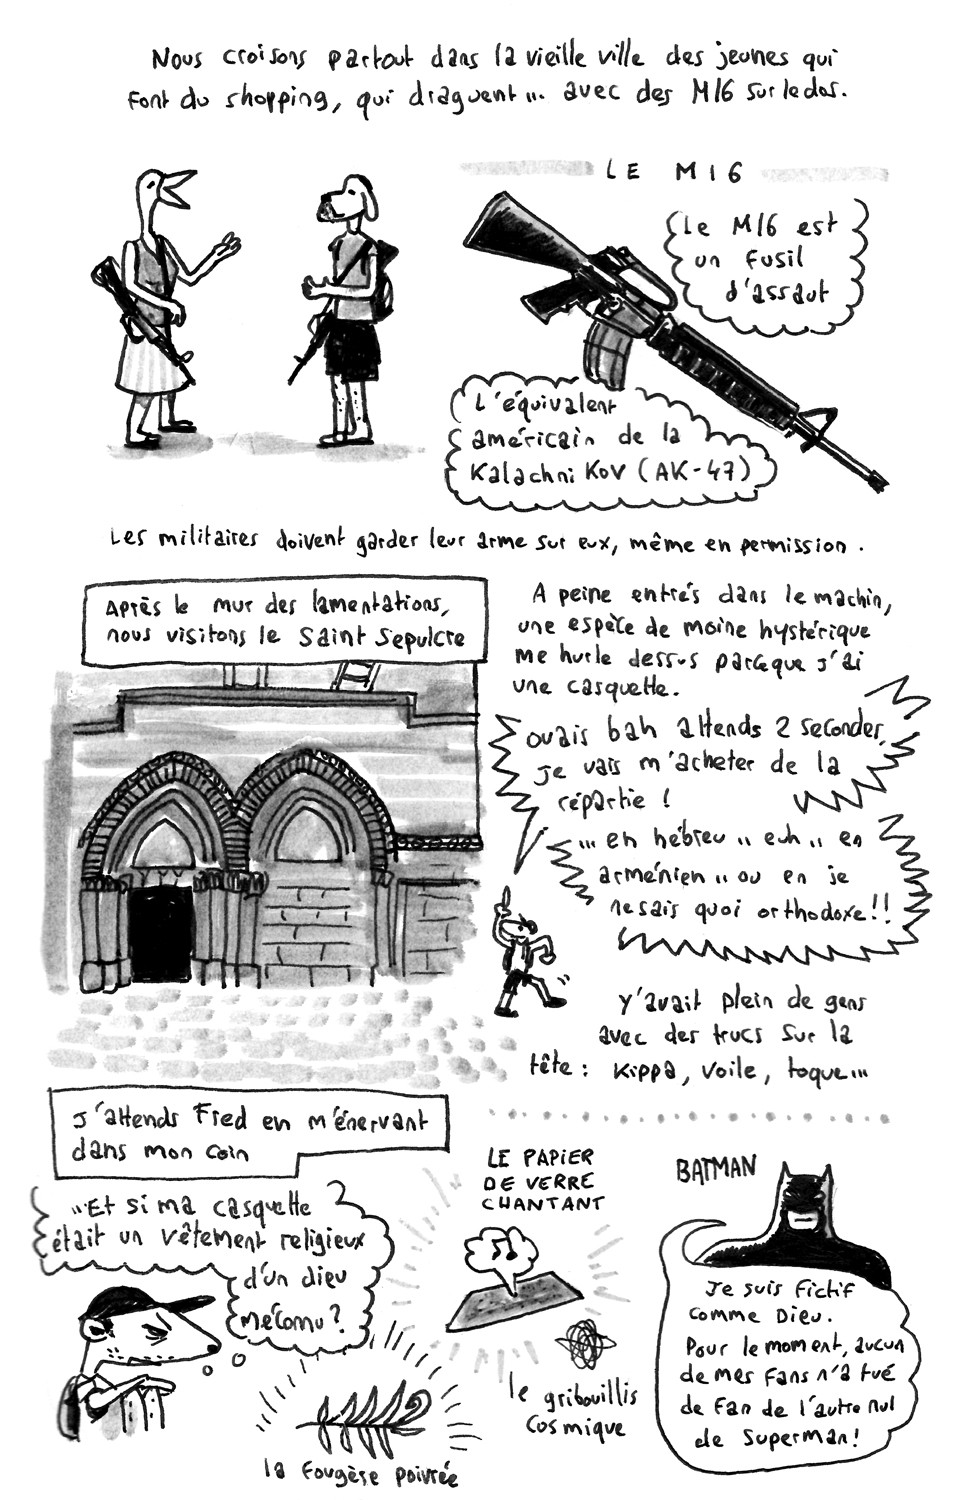 Nous croisons partout dans la vieille ville des jeunes qui
font du shopping, qui draguent... avec des M16 sur le dos.
LE M16
Le M16 est
un fusil
d'assaut
L'équivalent
américain de la
Kalachnikov (AK-47)
Les militaires doivent garder leur arme sur eux, même en permission.
Après le mur des lamentations,
nous visitons le Saint Sepulcre
A peine entrés dans le machin,
une espèce de moine hystérique
me hurle dessus parceque j'ai
une casquette.
ouais bah attends 2 secondes,
je vais m'acheter de la
répartie !
... en hébreu .. euh .. en
arménien .. ou en je
ne sais quoi orthodoxe !!
Y'avait plein de gens
avec des trucs sur la
tête : Kippa, voile, toque...
J'attends Fred en m'énervant
dans mon coin
.. Et si ma casquette
était un vêtement religieux
d'un dieu
méconnu ?
LE PAPIER
DE VERRE
CHANTANT
le gribouillis
cosmique
la fougère poivrée
BATMAN
Je suis fictif
comme Dieu.
Pour le moment, aucun
de mes fans n'a tué
de fan de l'autre nul
de Superman !